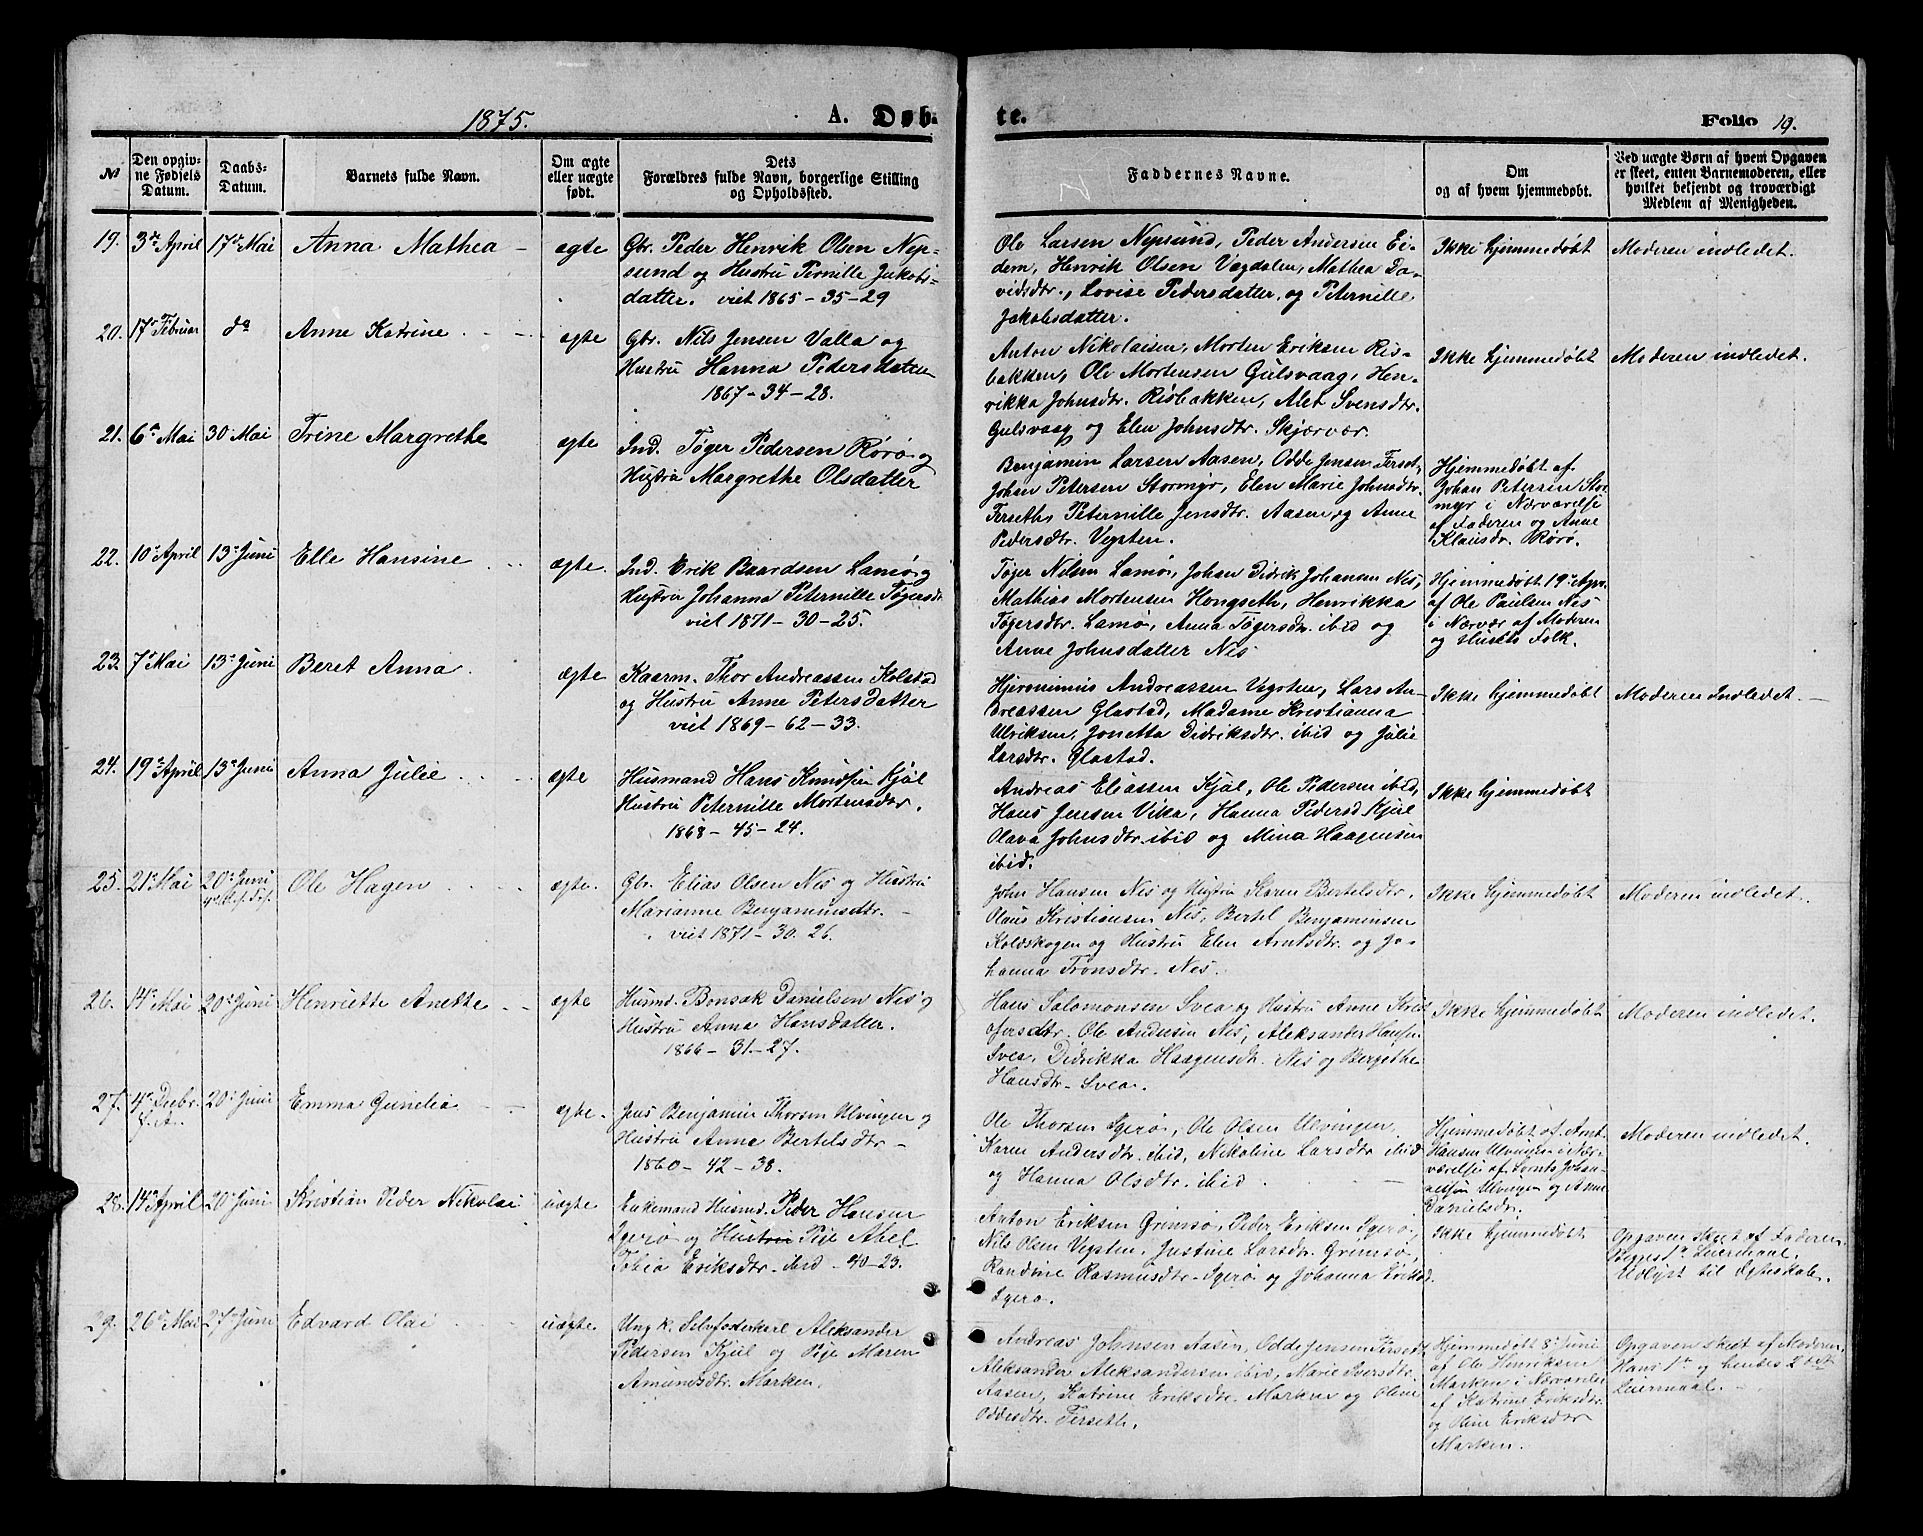 1875.
A. Døb-
te.
Folio 19.
№
Den opgiv-
ne Fødsels
Datum.
Daabs-
Datum.
Barnets fulde Navn.
Om ægte
eller uægte
født.
Dets
Forældres fulde Navn, borgerlige Stilling
og Opholdssted.
Faddernes Navne.
Om
og af hvem hjemmedøbt.
Ved uægte Børn af hvem Opgaven
er skeet, enten Barnemoderen, eller
hvilket bekjendt og troværdigt
Medlem af Menigheden.
19.
3die April
17de Mai
Anna Mathea -
ægte
Gbr. Peder Henrik Olsen Nep-
sund og Hustru Pernille Jakobs-
datter. viet 1865 - 35 - 29
Ole Larsen Nepsund, Peder Andersen Ei-
dem, Henrik Olsen Vegdalen, Mathea Da-
vidsdtr., Lovise Pedersdatter, og Peternille
Jakobsdatter.
Ikke hjemmedøbt
Moderen indledet.
20.
17de Februar
do
Anne Katrine
ægte
Gbr. Nils Jensen Valla og
Hustru Hanna Pedersdatter
1867 - 34 - 28.
Anton Nikolaisen, Morten Eriksen Ris-
bakken, Ole Mortensen Gulsvaag, Hen-
rikka Johnsdtr. Risbakken, Alet Svensdtr.
Gulsvaag og Elen Johnsdtr. Skjærvær.
Ikke hjemmedøbt
Moderen indledet.
21.
6te Mai
30 Mai
Trine Margrethe
ægte
Ind. Tøger Pedersen Rørø og
Hustru Margrethe Olsdatter
Benjamin Larsen Aasen, Odde Jensen Terset,
Johan Petersen Stormyr, Elen Marie Johnsdtr.
Terseth, Peternille Jensdtr. Aasen og Anne
Pedersdtr. Vegsten.
Hjemmedøbt af
Johan Petersen Stor
myr i Nærværelse
af Faderen og Anne
Klausdr. Rørø.
22.
10de April
13de Juni
Elle Hansine
ægte.
Ind. Erik Baardsen Lamø og
Hustru Johanna Peternille Tøgersd.
viet 1871 - 30 - 25.
Tøger Nilsen Lamø, Johan Didrik Johansen Nes,
Mathias Mortensen Hongseth, Henrikka
Tøgersdtr. Lamø, Anna Tøgersdr. ibid og
Anne Johnsdatter Nes
Hjemmedøbt 19de Apr.
af Ole Paulsen Nes
i Nærvær af Moderen
og Husets Folk.
23.
7de Mai
13de Juni
Beret Anna
ægte
Kaarm. Thor Andreassen Kolstad
og Hustru Anne Petersdatter
viet 1869 - 62 - 33.
Hjeronimus Andreassen Vegsten, Lars An-
dreassen Glastad, Madame Kristianna
Ulriksen, Jonetta Didriksdtr. ibid og Julie
Larsdtr. Glastad.
Ikke hjemmedøbt
Moderen Indledet. -
24.
19de April
13de Juni
Anna Julie
ægte
Husmand Hans Knudsen Kjøl
Hustru Peternille Mortensdtr.
1868 - 45 - 24.
Andreas Eliassen Kjøl, Ole Pedersen ibid,
Hans Jensen Vika, Hanna Pedersd. Kjul
Olava Johnsdtr. ibid og Mina Haagensen
ibid.
Ikke hjemmedøbt
25.
21de Mai
20de Juni
Ole Hagen
ægte.
Gbr. Elias Olsen Nes og Hustru
Marianne Benjaminsdtr. -
viet 1871 - 30. 26.
John Hansen Nes og Hustru Karen Bertelsdtr.
Olaus Kristiansen Nes, Bertel Benjaminsen
Koldskogen og Hustru Elen Arntsdtr. og Jo-
hanna Tronsdtr. Nes.
Ikke hjemmedøbt
Moderen indledet.
26.
14de Mai
20de Juni
Henriette Anette
ægte
Husmd. Bonsak Danielsen Nes og
Hustru Anna Hansdatter.
1866 - 31 - 27.
Hans Salomonsen Svea og Hustru Anne Krist
ofersdtr. Ole Andersen Nes, Aleksander Hansen
Svea, Didrikka Haagensdtr. Nes og Bergethe
Hansdtr. Svea.
Ikke hjemmedøbt
Moderen indledet.
27.
4de Decbr.
f. A.
20de Juni
Emma Gunelia
ægte.
Jens Benjamin Thorsen Ulvingen og
Hustru Anna Bertelsdtr -
1860 - 42 - 38.
Ole Thorsen Igerø, Ole Olsen Ulvingen,
Karen Andersdtr. ibid, Nikoline Larsdtr ibid
og Hanna Olsdtr. ibid.
Hjemmedøbt af Arnt
Hansen Ulvingen i Nær-
værelse af Arnt Johan-
nessen Ulvingen og Anne
Danielsdtr.
Moderen indledet.
28.
14de April
20de Juni
Kristian Peder Nikolai
uægte
Enkemand Husmd. Peder Hansen
Igerø og Hustru Pige Abel
Tobia Eriksdtr. ibid - 40 - 23.
Anton Eriksen Grimsø, Peder Eriksen Igerø,
Nils Olsen Vegsten, Justine Larsdtr. Grimsø,
Randine Rasmusdtr. Igerø og Johanna Eriksd.
Igerø.
Ikke hjemmedøbt
Opgaven skeet af Faderen.
Begges 1ste Leiermaal.
Udlyst til Ægteskab.
29.
26de Mai
27de Juni
Edvard Olai
uægte.
Ung k. Selvfoderkarl Aleksander
Pedersen Kjul og Pige Maren
Amundsdtr. Marken.
Andreas Johnsen Aasen, Odde Jensen Terseth
Aleksander Aleksandersen ibid, Marie Iversdtr.
Aasen, Katrine Eriksdtr. Marken og Oline
Oddesdtr. Terseth.
Hjemmedøbt 8de Juni
af Ole Henriksen
Marken i Nærværelse
af Katrine Eriksdtr.
og Oline Eriksdtr
Marken.
Opgaven skeet af Moderen,
Hans 1ste og hendes 2det
Leiermaal.